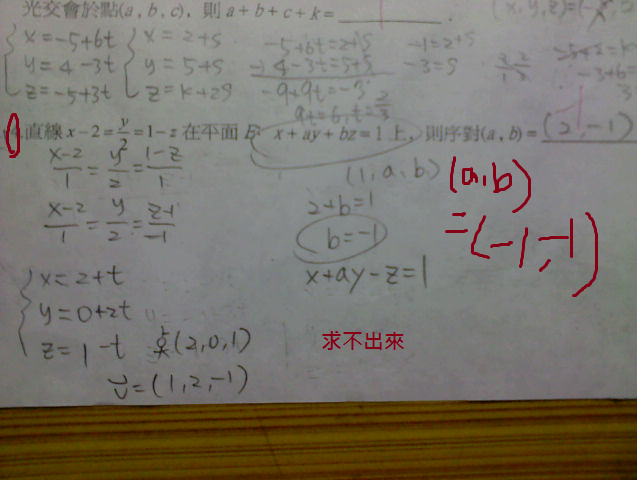 光交會於點(a, b, c), 則 a+b+c+k=
(x, y, z)=(
x=-5+6t
y=4-3t
z=-5+3t
x=2+s
y=5+s
z=k+2s
-5+6t=2+s
-) 4-3t=5+s
-9+9t=-3
9t=6, t=2/3
-1=2+s
-3=s
直線 x-2=y/2=1-z 在平面 E: x+ay+bz=1 上, 則序對(a, b)= (2, -1)
(x-2)/1=y/2=(1-z)/1
(x-2)/1=y/2=(z-1)/-1
(1, a, b)
2+b=1
b=-1
x+ay-z=1
(a,b)
=(-1,-1)
x=2+t
y=0+2t
z=1-t
點(2,0,1)
v=(1,2,-1)
求不出來